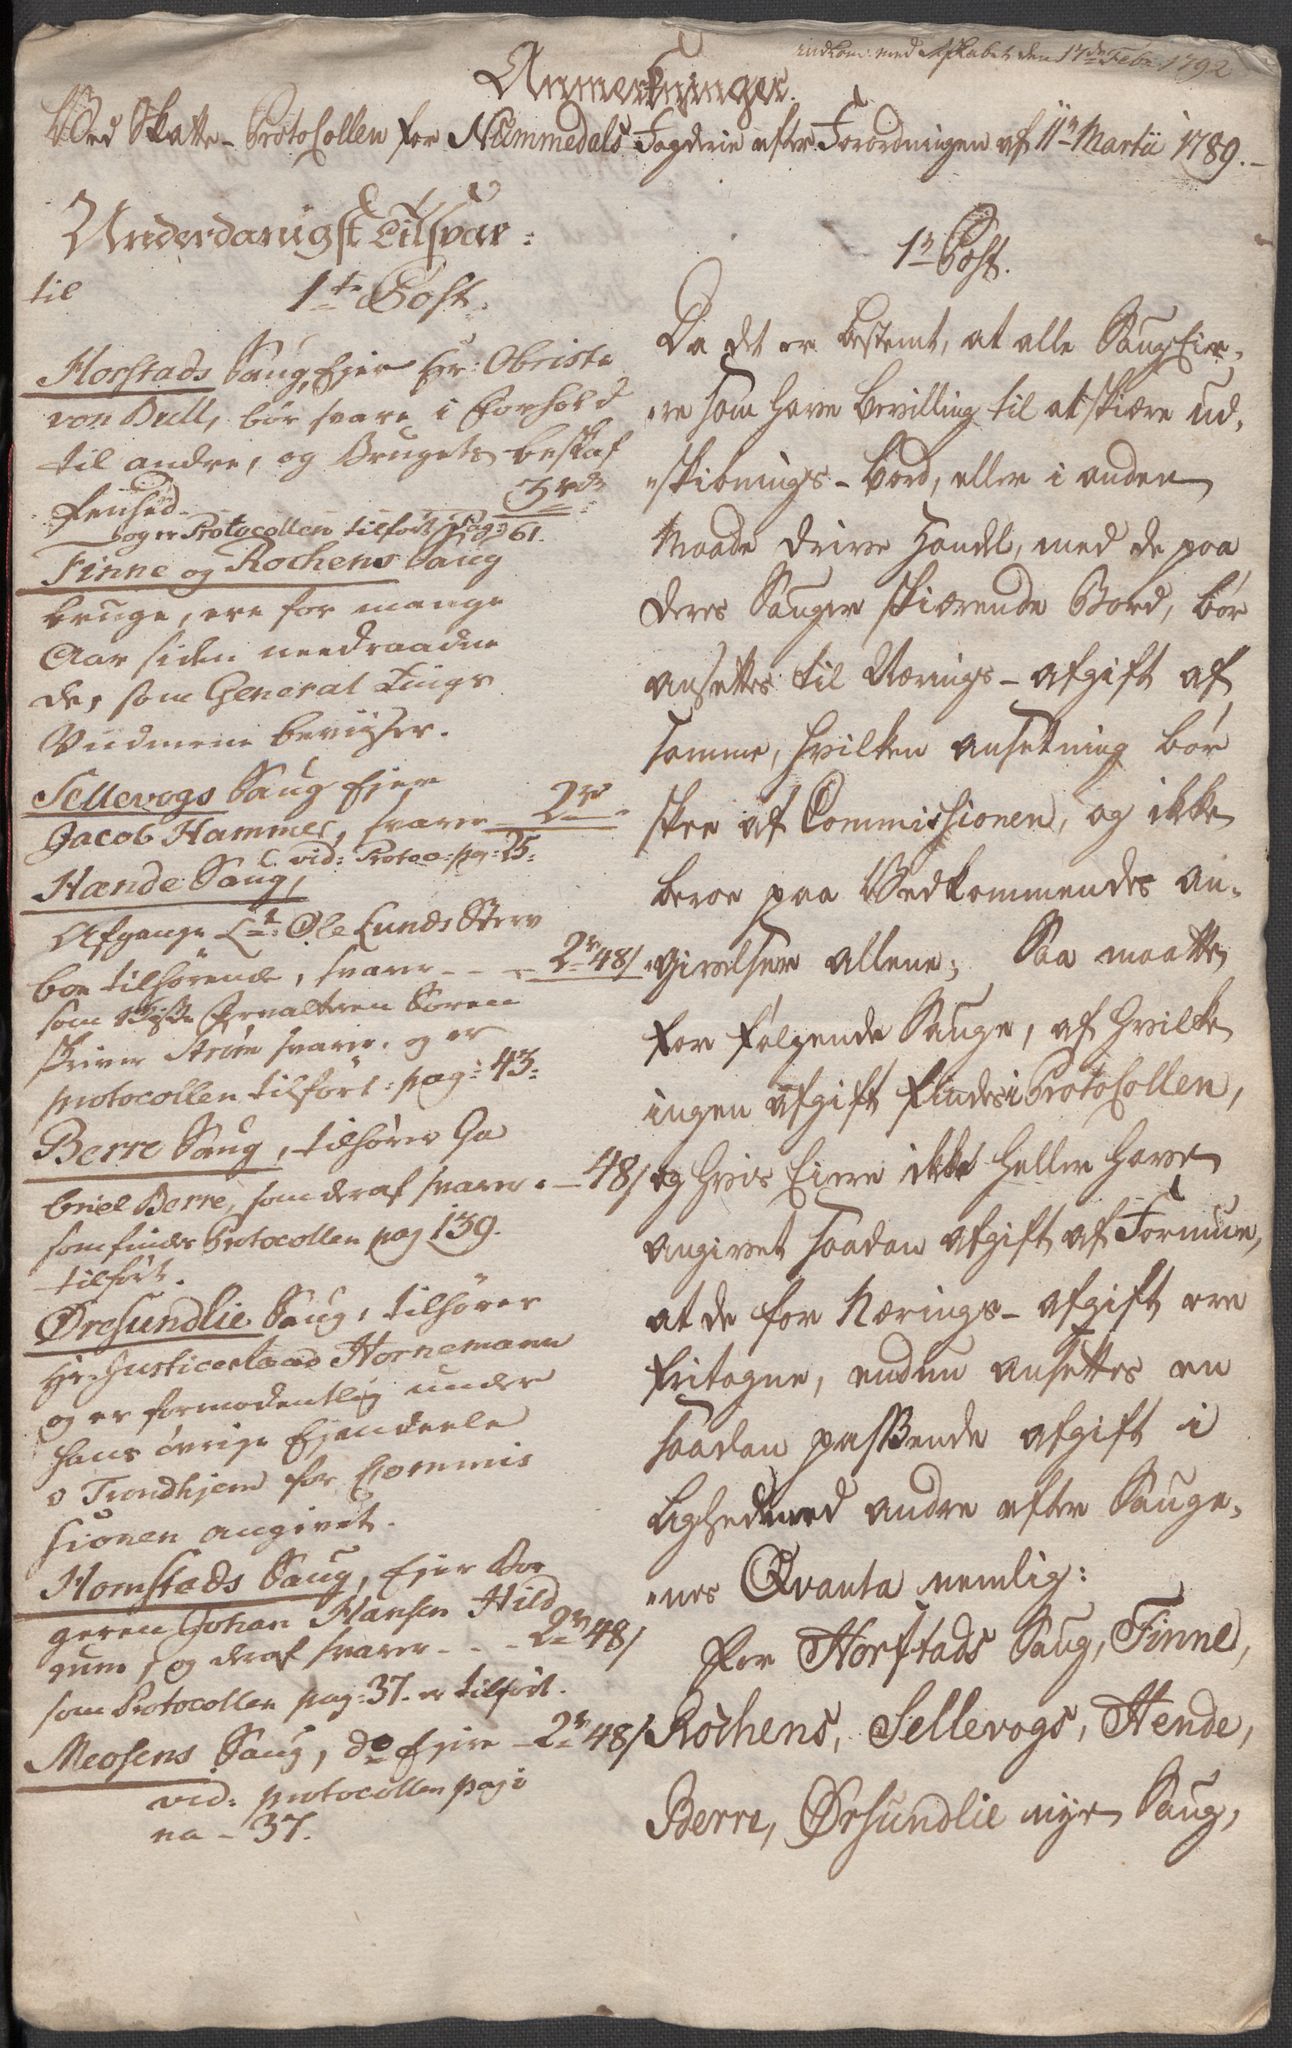 indkom: med Afskabet den 17de Febr 1792
Anmerkninger.
Ved Skatte-Protocollen for Nummedals Fogderie efter Forordningen af 11te Martii 1789.-
Underdanigst Tilsvar:
til 1te Post.
Horstads Saug, Ejer Hr: Obriste
von Bull, bør svare i Forhold
til andre, og Brugets beskaf
fenhed 3 rd
og er Protocollen tilført Pag: 61.
Finne og Rochens Saug
bruge, ere for mange
Aar siden needraadne
de, som General Tings
Vidnerne beviiser.
Sellevogs Saug Ejer
Jacob Hammer, svarer 2 rd
vid: Protoc: pag: 25:
Hænde Saug,
Afgangne Lt: Ole Lunds Sterv
boe tilhørende, svarer - - - 2 r 48/
som Forvalteren Soren
skriver Strøm svarer. og er
protocollen tilført: pag: 43:
Berre Saug, tilhører Ga
briel Berre, som deraf svarer. - 48/
som findes Protocollen pag 139.
tilført.
Øresundlie Saug, tilhører
Hr. Justiceraad Hornemann
og er formodentlig under
hans øvrige Ejendeele
i Trondhjem for Commis
sionen angivet.
Homstads Saug, Ejer Bor
geren Johan Hansen Hild
qum, og deraf svarer - - - 2 r 48/
som Protocollen pag: 37. er tilført.
Meosens Saug, do Ejere - 2 r 48/
vid: protocollen pagi
na - 37.
1te Post.
Da det er bestemt, at alle Saug Eie,,
,,re som have Bevilling til at skiære ud,,
,,skibnings-Bord, eller i anden
Maade drive Handel, med de paa
deres Sauger skiærende Bord, bør
ansettes til Nærings-afgift af
samme, hvilken ansetning bør
skee af Commissionen, og ikke
beroe paa Vedkommendes an,,
,,givelser allene; Saa maatte
for følgende Sauge, af hvilke
ingen afgift findes i Protocollen,
og hvis Eiere ikke heller have
angivet saadan afgift af Formue,
at de for Nærings-afgift ere
fritagne, endnu ansettes en
saadan passende afgift i
Lighed med andre efter Sauge,,
,,nes Qvanta nemlig:
For Horstads Saug, Finne,
Rochens, Sellevogs, Hende,
Berre, Ørsundlie nye Saug,